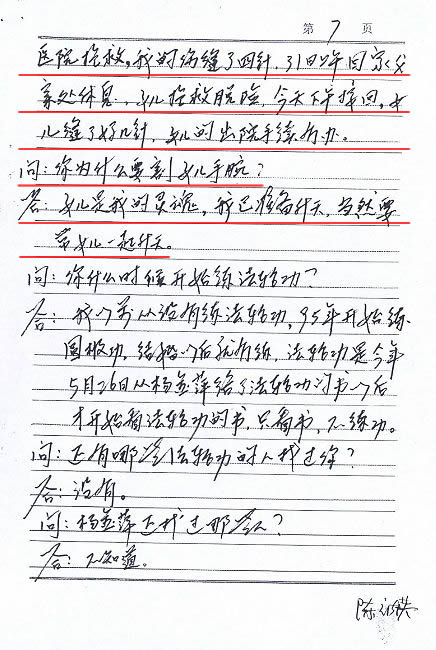 第 7 页
医院抢救,我的伤缝了四针,31日下午回家父
亲处休息,女儿抢救脱险,今天下午接回,女
儿缝了好几针,女儿的出院手续有办。
问:你为什么要割女儿手腕?
答:女儿是我的灵魂,我已准备升天,当然要
带女儿一起升天。
问:你什么时候开始练法轮功?
答:我以前从没有练法轮功,95年开始练
圆极功,结婚以后就有练,法轮功是今年
5月26日从杨益萍给了法轮功的书以后
才开始看法轮功的书,只看书,不练功。
问:还有哪些法轮功的人找过你?
答:没有。
问:杨益萍还找过那些人?
答:不知道。
陈